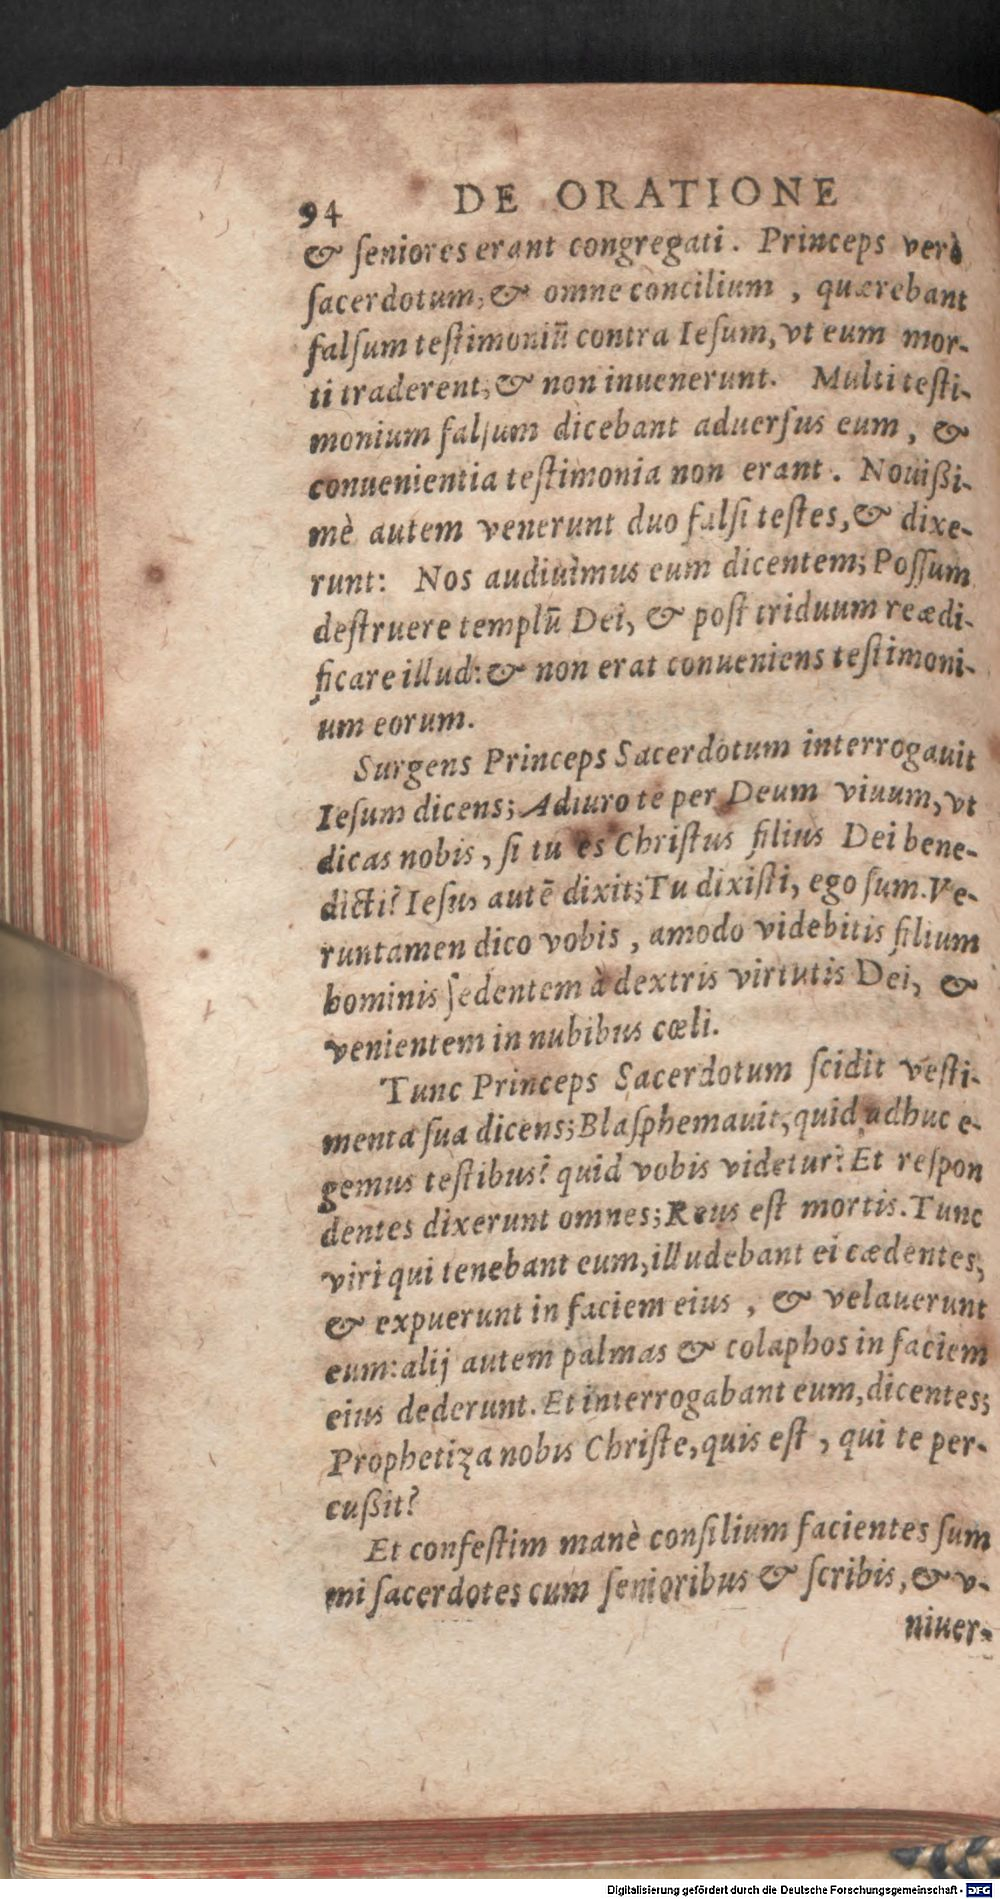 94 DE ORATIONE
& ſeniores erant congregati. Princeps verò
ſacerdotum, & omne concilium, quærebant
falſum teſtimoniũ contra Ieſum, vt eum mor-
ti traderent, & non inuenerunt. Multi teſti-
monium falſum dicebant aduerſus eum, &
conuenientia teſtimonia non erant. Nouißi-
mè autem venerunt duo falſi teſtes, & dixe-
runt: Nos audiuimus eum dicentem; Poſſum
deſtruere templũ Dei, & poſt triduum reædi-
ficare illud: & non erat conueniens teſtimoni-
um eorum.
Surgens Princeps Sacerdotum interrogauit
Ieſum dicens; Adiuro te per Deum viuum, vt
dicas nobis, ſi tu es Chriſtus filius Dei bene-
dicti? Ieſus autẽ dixit; Tu dixiſti, ego ſum. Ve-
runtamen dico vobis, amodo videbitis filium
hominis ſedentem à dextris virtutis Dei, &
venientem in nubibus cœli.
Tunc Princeps Sacerdotum ſcidit veſti-
menta ſua dicens; Blaſphemauit, quid adhuc e-
gemus teſtibus? quid vobis videtur? Et reſpon
dentes dixerunt omnes; Reus eſt mortis. Tunc
viri qui tenebant eum, illudebant ei cædentes,
& expuerunt in faciem eius, & velauerunt
eum: alij autem palmas & colaphos in faciem
eius dederunt. Et interrogabant eum, dicentes;
Prophetiza nobis Chriſte, quis eſt, qui te per-
cußit?
Et confeſtim manè conſilium facientes ſum
mi ſacerdotes cum ſenioribus & ſcribis, & v-
niuer-
Digitalisierung gefördert durch die Deutsche Forschungsgemeinschaft - DFG